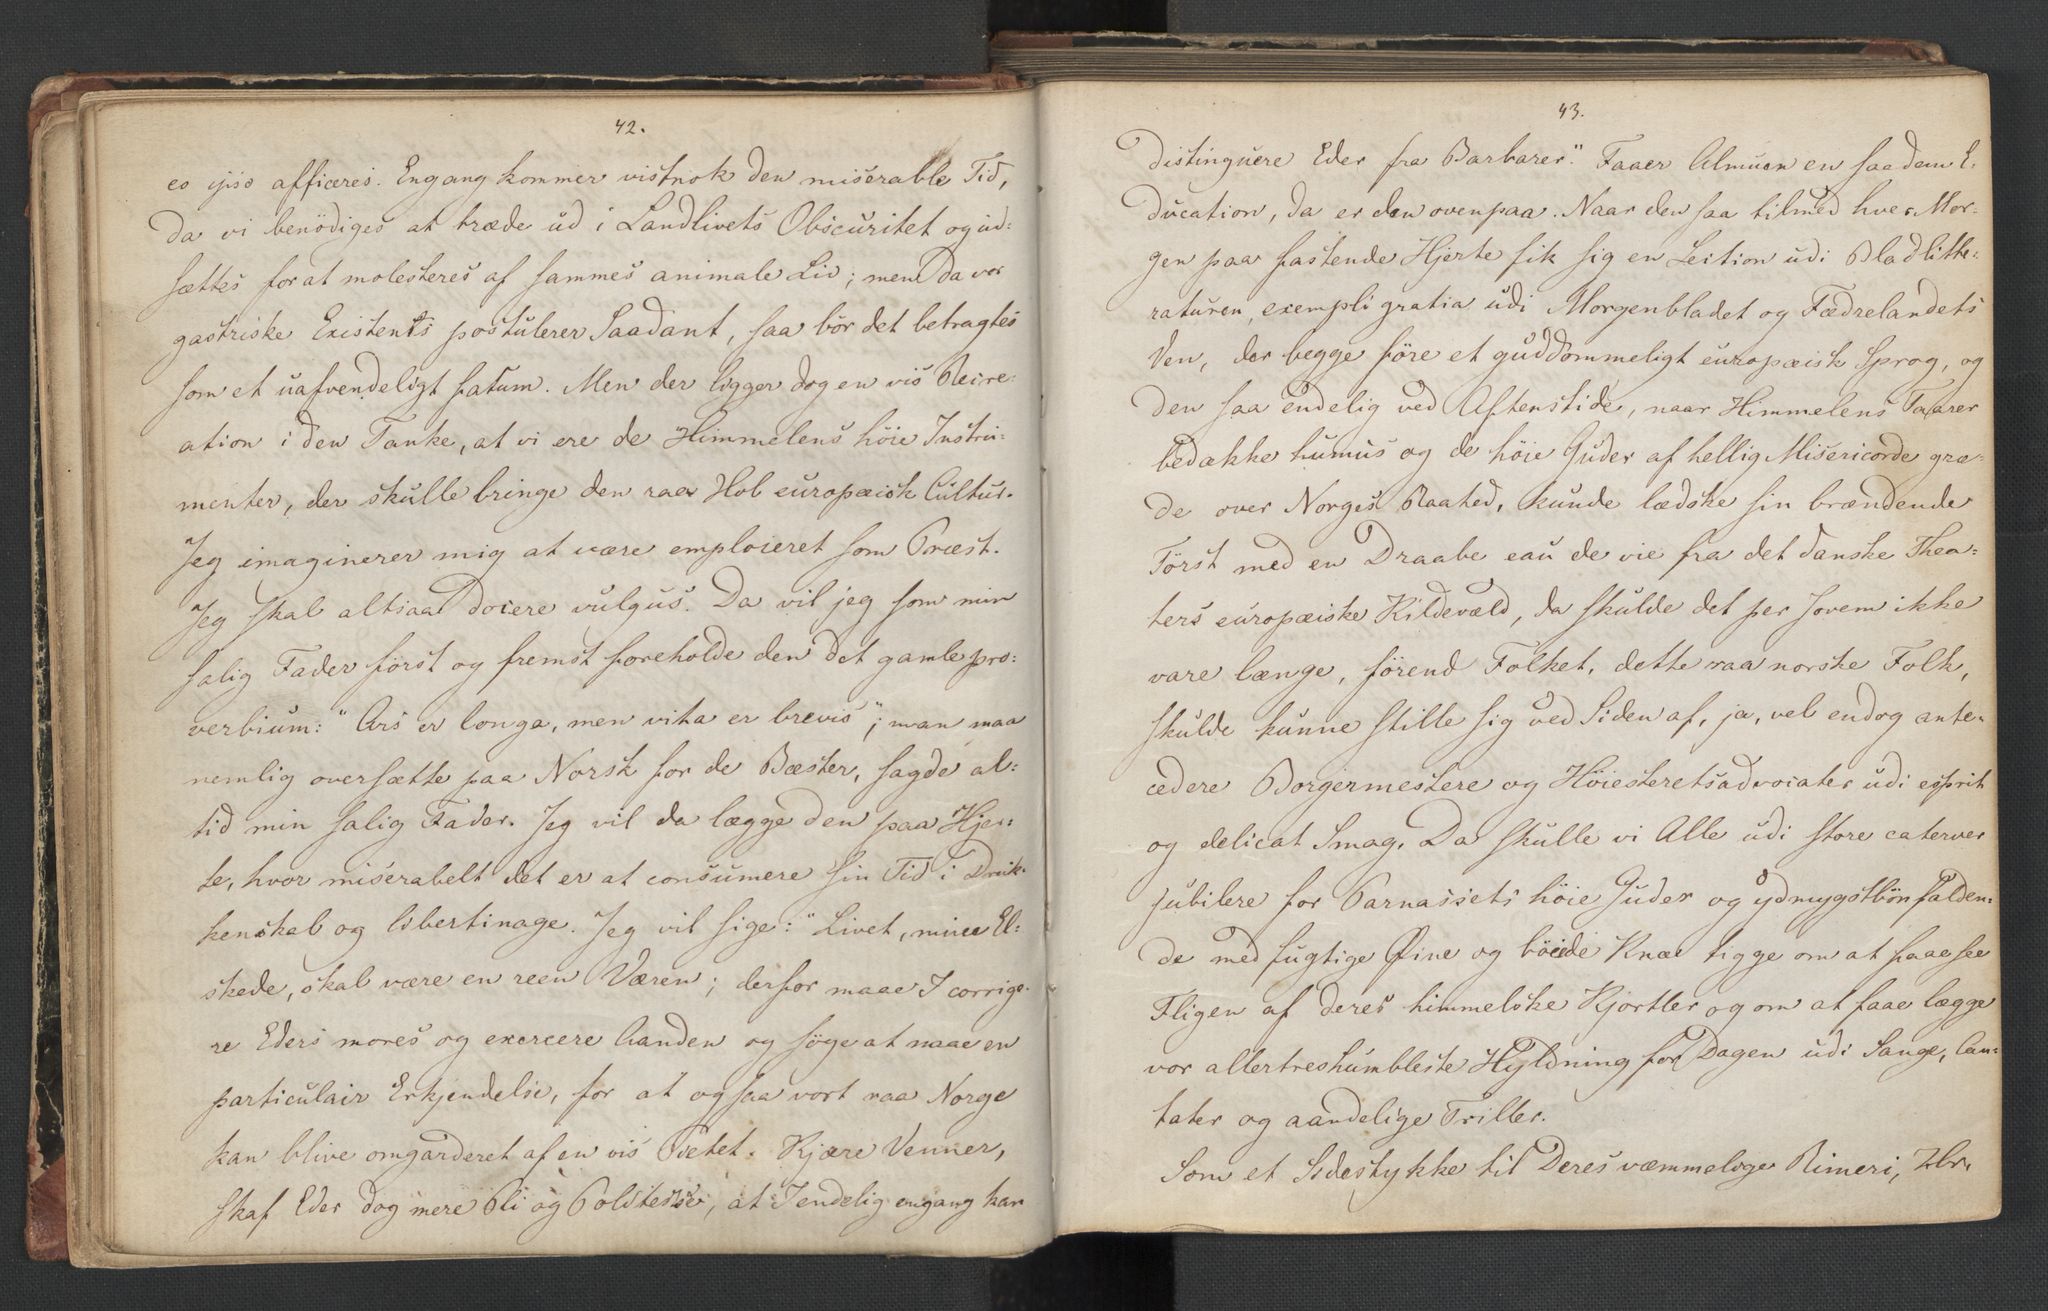 42.
eo ipso afficeres. Engang kommer vistnok den miserable Tid,
da vi benödiges at træde ud i Landlivets Obscuritet og ud=
sættes for at molesteres af sammes animale Liv; men da vor
gastriske Existents postulerer Saadant, saa bör det betragtes
som et uafvendeligt fatum. Men der ligger dog en vis Recre=
ation i den Tanke, at vi ere de Himmelens höie Instru=
menter, der skulle bringe den raa Hob europæisk Cultur.
Jeg imaginerer mig at være emploieret som Præst.
Jeg skal altsaa docere vulgus. Da vil jeg som min
salig Fader först og fremst foreholde den det gamle pro=
verbium: "Ars er longa, men vita er brevis"; man maa
nemlig oversætte paa Norsk for de Bæster, sagde al=
tid min salig Fader. Jeg vil da lægge den paa Hjer=
te, hvor miserabelt det er at consumere sin Tid i Druk=
kenskab og libertinage. Jeg vil sige: "Livet, mine El=
skede, skal være en reen Væren; derfor maae I corrige=
re Eders mores og exercere Aanden og söge at naae en
particulair Erkjendelse, for at ogsaa vort raa Norge
kan blive omgarderet af en vis Pietet. Kjære Venner,
skaf Eder dog mere Pli og Politesse, at I endelig engang kan
43.
distinguere Eder fra Barbarer." Faaer Almuen en saadan E=
ducation, da er den ovenpaa. Naar den saa tilmed hver Mor=
gen paa fastende Hjerte fik sig en Lection udi Bladlitte=
raturen, exempli gratia udi Morgenbladet og Fædrelandets
Ven, der begge före et guddommeligt europæisk Sprog, og
den saa endelig ved Aftenstide, naar Himmelens Taarer
bedække humus og de höie Guder af hellig Misericorde græ=
de over Norges Raahed, kunde lædske sin brændende
Törst med en Draabe eau de vie fra det danske Thea=
ters europæiske Kildevæld, da skulde det per Jovem ikke
vare længe, förend Folket, dette raa norske Folk,
skulde kunne stille sig ved Siden af, ja, vel endog ante=
cedere Borgermestere og Höiesteretsadvocater udi esprit
og delicat Smag. Da skulle vi Alle udi store caterver
jubilere for Parnassets höie Guder og ydmygst bönfalden=
de med fugtige Øine og böiede Knæ tigge om at faae see
Fligen af deres himmelske Kjortler og om at faae lægge
vor allertreshumbleste Hyldning for Dagen udi Sange, Can=
tater og aandelige Triller.
Som et Sidestykke til Deres væmmelige Rimeri, Hr.